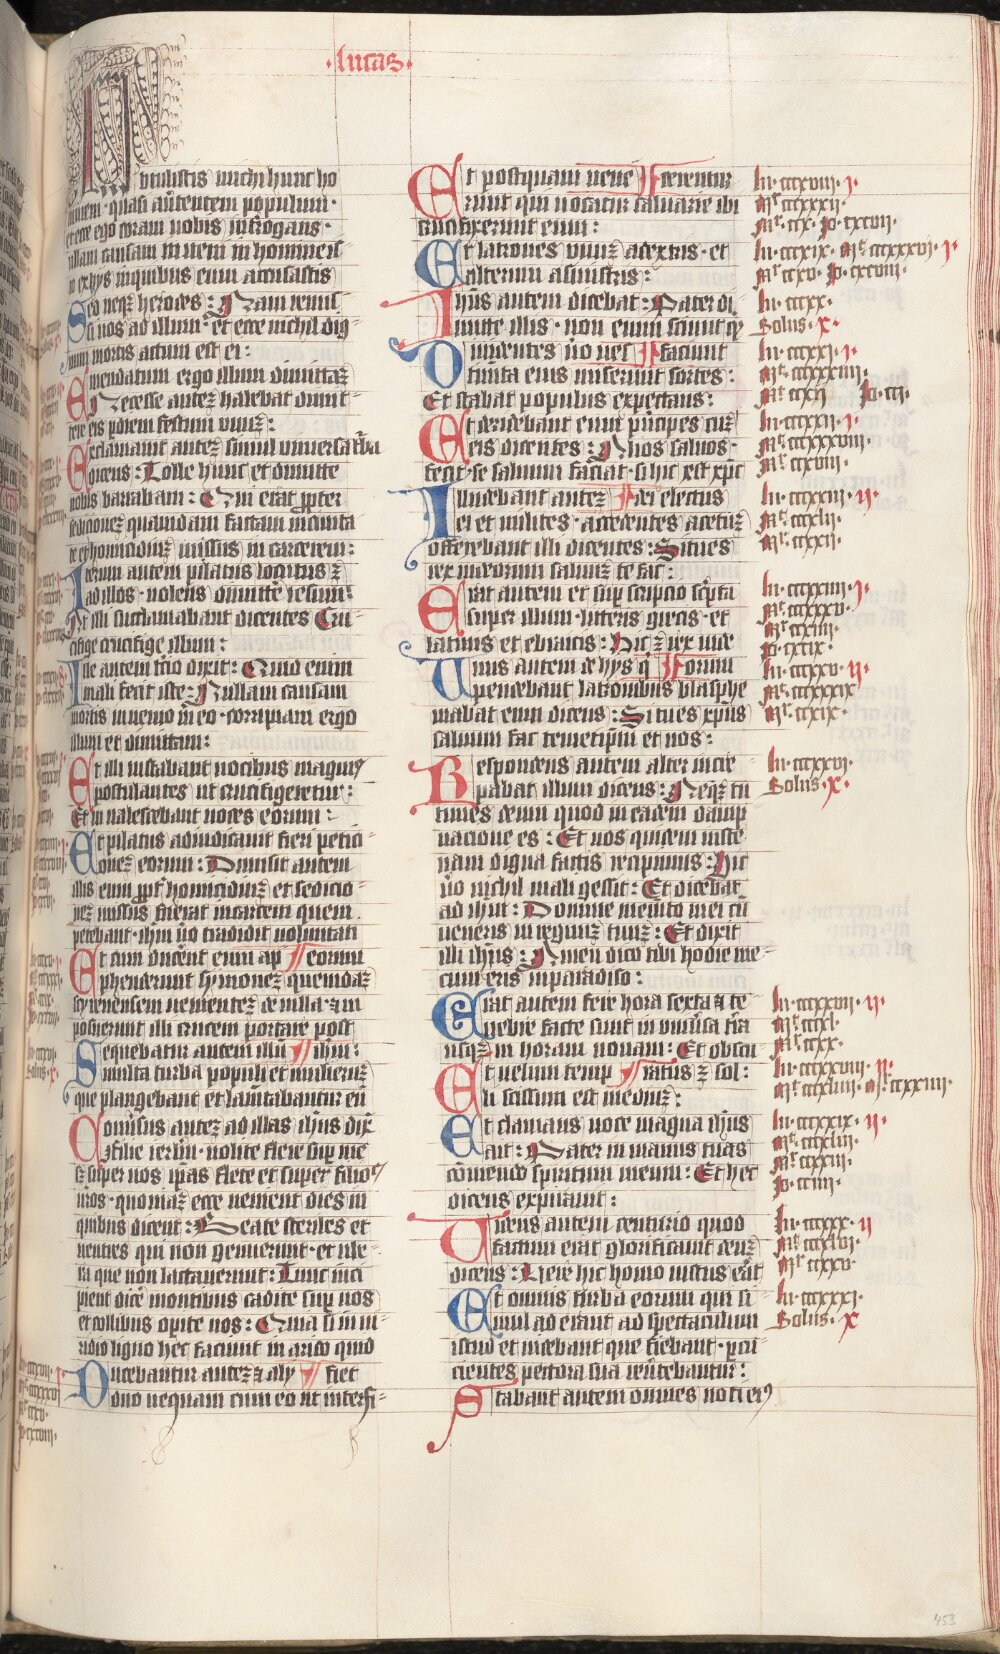 ·lucas·
btulistis michi hunc ho
minem · quasi auertentem populum ·
et ecce ego coram uobis interrogans ·
ullam causam inueni in homine is
to ex hys in quibus eum accusastis
Sed neq3 herodes : Nam remi
si uos ad illum · et ecce nichil dig
num mortis actum est ei :
Emendatum ergo illum dimittaz
Necesse autez habebat dimit
tere eis per diem festum vnuz :
Exclamauit autez simul vniuersa tba
dicens : Tolle hunc et dimitte
nobis barraban : Qui erat ppter
sedicionez quandam factam in ciuita
te et homicidiuz missus in carcerem :
Iterum autem pilatus locutus est
ad illos · uolens dimittere iesum
At illi succlamabant dicentes Cru
cifige crucifige illum :
Ille autem tercio dixit : Quid enim
mali fecit iste : Nullam causam
mortis inuenio in eo · corripiam ergo
illum et dimittam :
Et illi instabant uocibus magnis
postulantes ut crucifigeretur :
Et inualescebant uoces eorum :
Et pilatus adiudicauit fieri petici
onez eorum : Dimisit autem
illis eum qui ppt homicidiuz et sedicio
nez missus fuerat in carcerem quem
petebant · ihm uero tradidit uoluntati
Et cum ducerent eum ap eorum
phenderunt symonez quemdaz
syrenensem uenientez de uilla · et im
posuerunt illi crucem portare post
Sequebatur autem illum ihm :
multa turba populi et mulieruz
que plangebant et lamentabantur eu
Conuersus autez ad illas ihesus dix
Filie ierlm · nolite flere sup me
sed super uos ipsas flete et super filios
uros · quoniaz ecce uenient dies in
quibus dicent : Beate steriles et
uentres qui non genuerunt · et ube
ra que non lactauerunt : Tunc inci
pient dicere montibus cadite sup nos
et collibus opite nos : Quia si in ui
ridi ligno hec faciunt in arido quid
Ducebantur autez et aly fiet
duo nequam cum eo ut interfi
Et postquam uene ficerentur
runt qui uocatur caluarie ibi
crucifixerunt eum :
Et latrones vnuz a dextris · et
alterum a sinistris :
Ihus autem dicebat : Pater di
mitte illis · non enim sciunt q
Diuidentes uero ues faciunt
timenta eius miserunt sortes :
Et stabat populus expectans :
Et deridebant eum principes cuz
eis dicentes : Alios saluos
fecit · se saluum faciat · si hic est xpc
Illudebant autez dei electus
ei et milites · accedentes acetuz
offerebant illi dicentes : Si tu es
rex iudeorum saluuz te fac :
Erat autem et sup scriptio scripta
super illum · litteris grecis · et
latinis et ebraicis : Hic est rex iude
Vnus autem de hys q orum
pendebant latronibus blasphe
mabat eum dicens : Si tu es xpus
saluum fac temetipm et nos :
Respondens autem alter incre
pabat illum dicens : Neq3 tu
times deum quod in eadem damp
nacione es : Et nos quidem iuste
nam digna factis recipimus : hic
uero nichil mali gessit : Et dicebat
ad ihm : Domine memento mei cu
ueneris in regnuz tuuz : Et dixit
illi ihus : Amen dico tibi hodie me
cum eris in paradiso :
Erat autem fere hora sexta et te
nebre facte sunt in vniuersa terra
usq3 in horam nonam : Et obscu
Et uelum temp ratus est sol :
li scissum est mediuz :
Et clamans uoce magna ihus
ait : Pater in manus tuas
comendo spiritum meum : Et hec
dicens expirauit :
Videns autem centurio quod
factum erat glorificauit deuz
dicens : Vere hic homo iustus erat
Et omnis turba eorum qui si
mul aderant ad spectaculum
istud et uidebant que fiebant · pcu
cientes pectora sua reuertebantur :
Stabant autem omnes noti eius
lu · cccxviii · i ·
Mr cccxxxii ·
Mt · cccx · Jo · cxcvii ·
lu · cccxix · Mt · cccxxxvi · i ·
Mr ccxv · Jo · cxcviii ·
lu · cccxx ·
Solus · x ·
lu · cccxxi · i ·
lu · cccxxii · i ·
lu · cccxxiii · ii ·
lu · cccxxiiii · i ·
lu · cccxxv · ii ·
Mt · cccxxxix
Mr · ccxix ·
lu · cccxxvi ·
Solus · x ·
lu · cccxxvii · ii ·
Mt cccxl ·
Mr ccxx ·
lu · cccxxviii · ii ·
Mt · cccxliiii · Mr · ccxxiiii ·
lu · cccxxix · ii ·
Mt · cccxliii ·
Mr ccxxiii ·
Jo · cciiii ·
lu · cccxxx · ii
Mt cccxlvi ·
Mr ccxxv ·
lu · cccxxxi ·
Solus · x
453